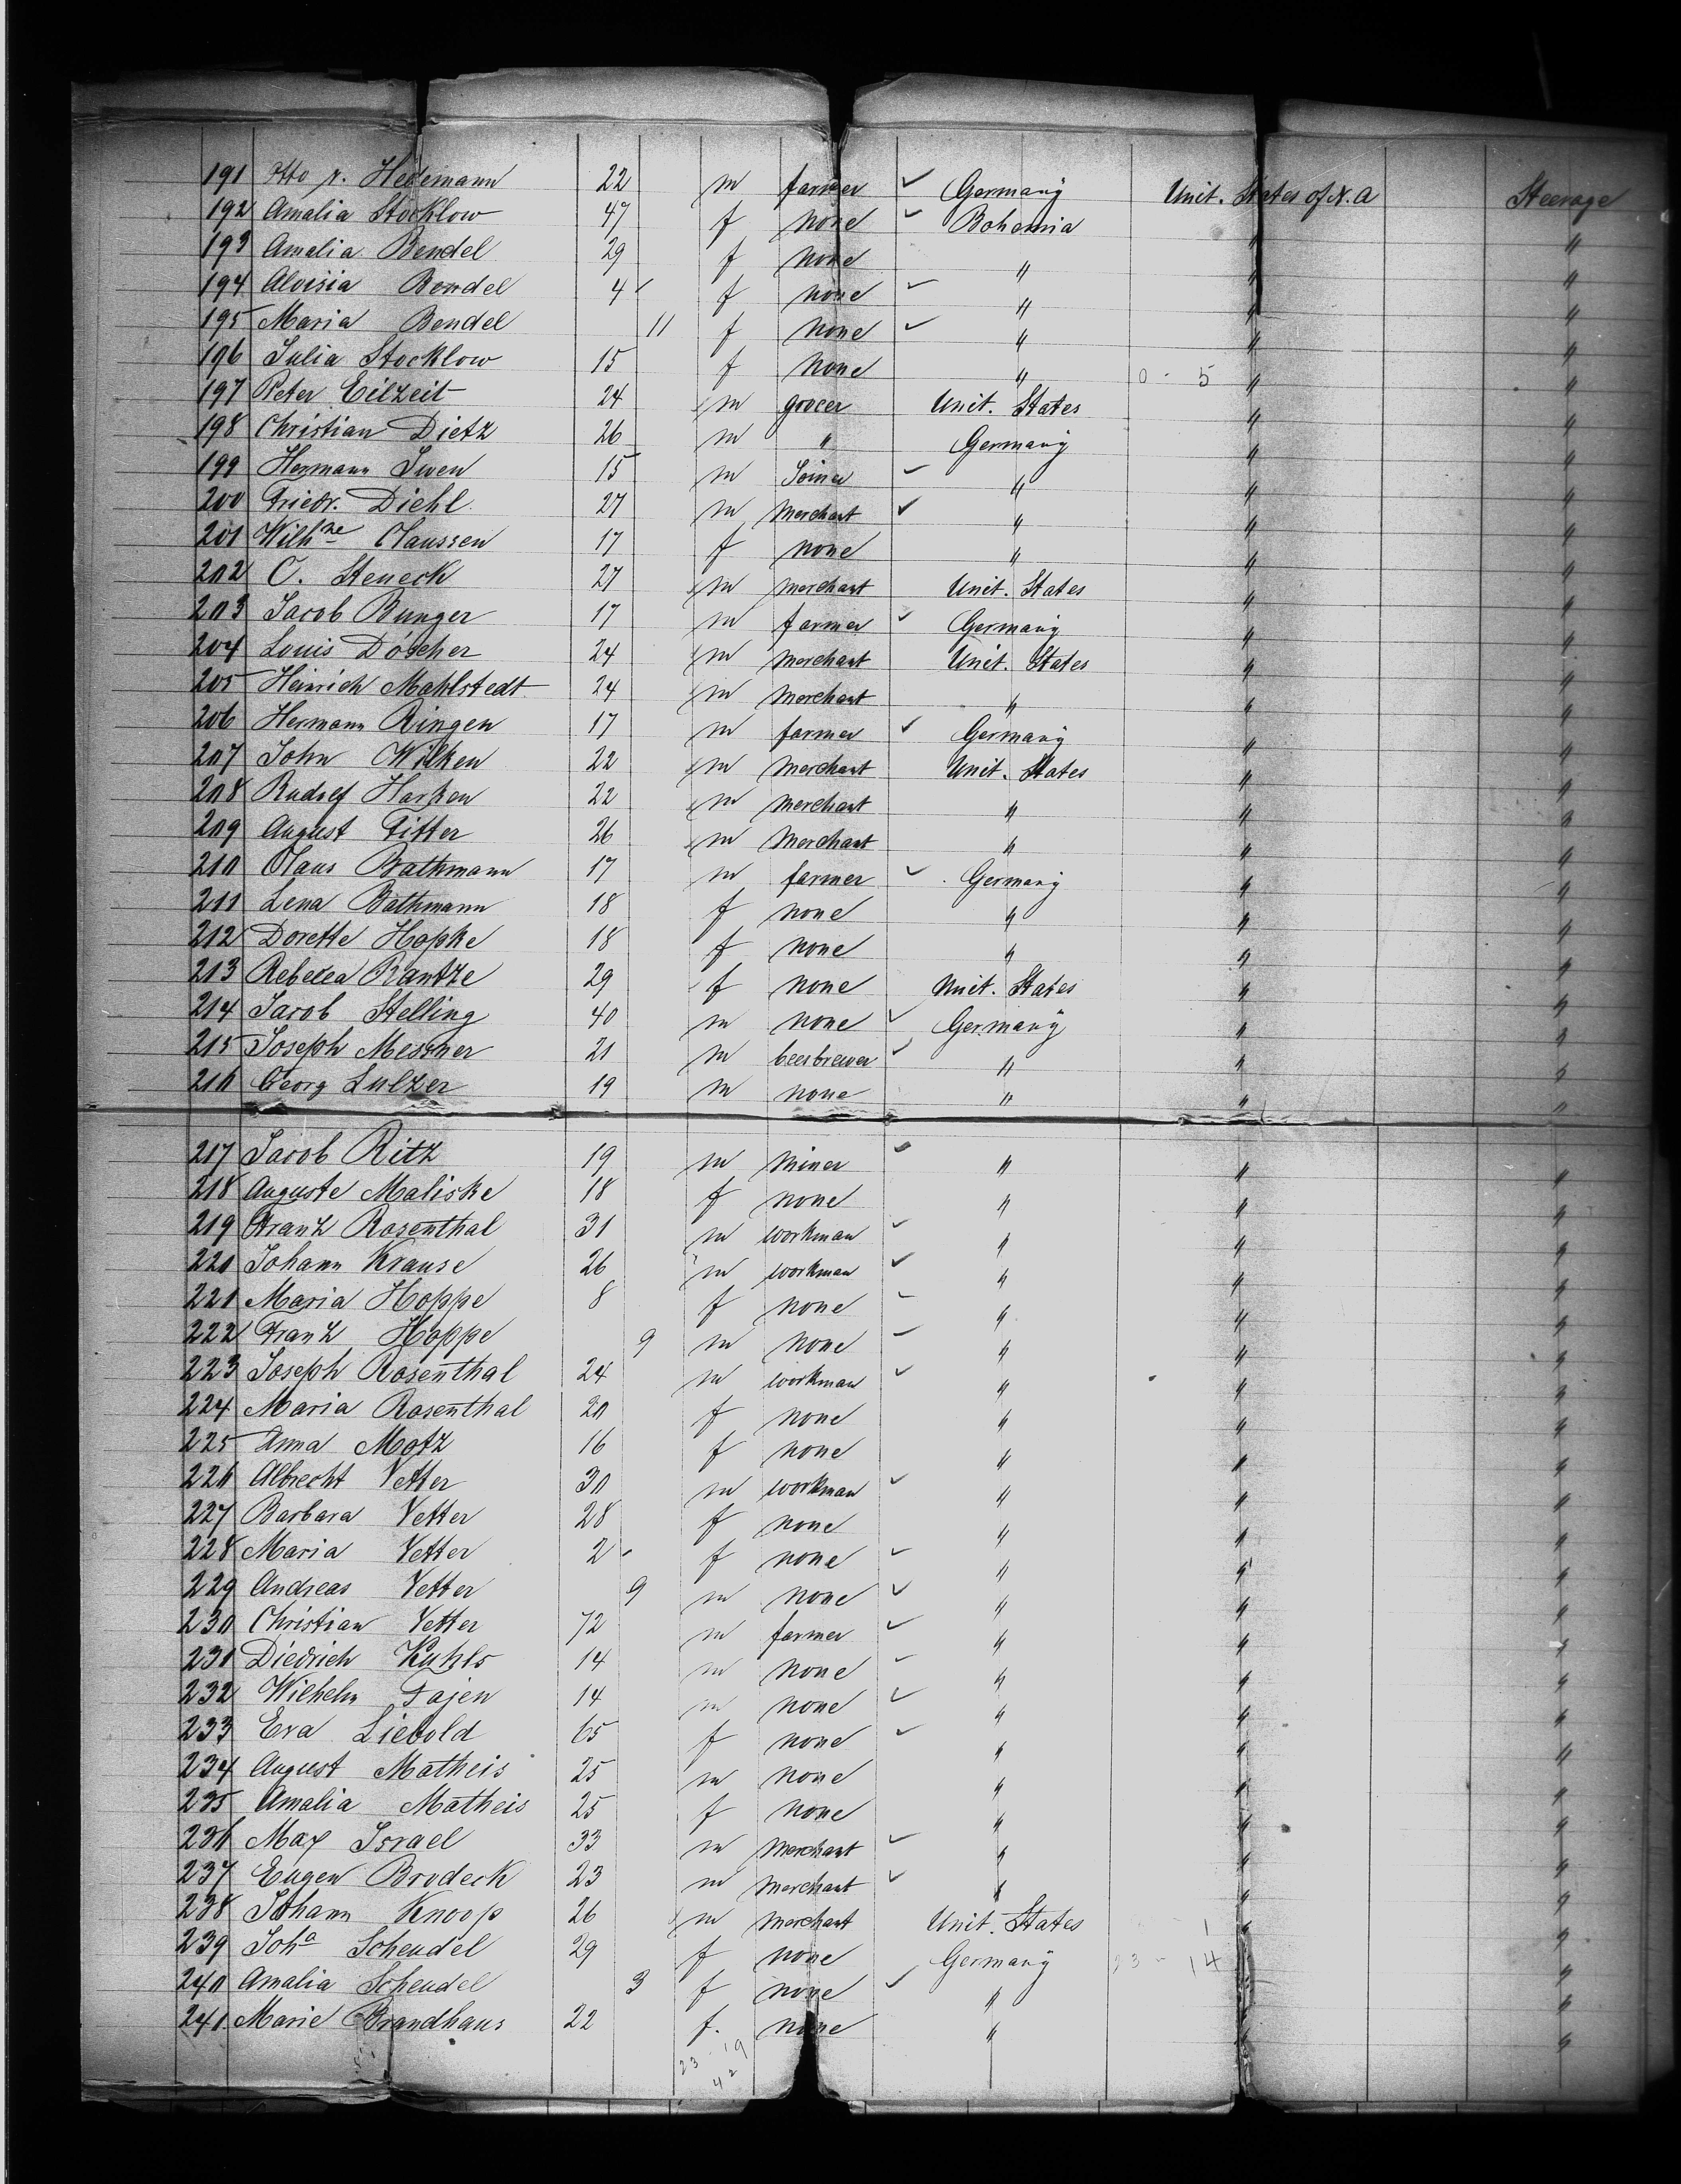 191 Otto v. Hedemann 22 m farmer ✓ Germany Unit. States of N. A Steerage
192 Amalia Stocklow 47 f none ✓ Bohemia " "
193 Amalia Bendel 29 f none " " "
194 Aloisia Bendel 4 f none ✓ " " "
195 Maria Bendel 11 f none ✓ " " "
196 Julia Stocklow 15 f none " 0 - 5 " "
197 Peter Eilzeit 24 m grocer Unit. States " "
198 Christian Dietz 26 m " Germany " "
199 Hermann Iwen 15 m Joiner ✓ " " "
200 Friedr. Diehl 27 m merchant ✓ " " "
201 Wilhne Claussen 17 f none " " "
202 O. Steneck 27 m merchant Unit. States " "
203 Jacob Bunger 17 m farmer ✓ Germany " "
204 Louis Döscher 24 m merchant Unit. States " "
205 Heinrich Mahlstedt 24 m merchant " " "
206 Hermann Ringen 17 m farmer ✓ Germany " "
207 John Wilken 22 m merchant Unit. States " "
208 Rudolf Harken 22 m merchant " " "
209 August Fitter 26 m merchant " " "
210 Claus Bathmann 17 m farmer ✓ Germany " "
211 Lena Bathmann 18 f none " " "
212 Dorette Hopke 18 f none " " "
213 Rebecca Rantze 29 f none Unit. States " "
214 Jacob Stelling 40 m none ✓ Germany " "
215 Joseph Messner 21 m beerbrewer ✓ " " "
216 Georg Sulzer 19 m none " " "
217 Jacob Ritz 19 m miner ✓ " " "
218 Auguste Maliske 18 f none " " "
219 Franz Rosenthal 31 m workman ✓ " " "
220 Johann Krause 26 m workman ✓ " " "
221 Maria Hoppe 8 f none ✓ " " "
222 Franz Hoppe 9 m none ✓ " " "
223 Joseph Rosenthal 24 m workman ✓ " " "
224 Maria Rosenthal 20 f none " " "
225 Anna Motz 16 f none " " "
226 Albrecht Vetter 30 m workman ✓ " " "
227 Barbara Vetter 28 f none " " "
228 Maria Vetter 2 f none ✓ " " "
229 Andreas Vetter 9 m none ✓ " " "
230 Christian Vetter 72 m farmer ✓ " " "
231 Diedrich Kuhls 14 m none ✓ " " "
232 Wilhelm Fajen 14 m none ✓ " " "
233 Eva Liebold 65 f none ✓ " " "
234 August Matheis 25 m none " " "
235 Amalia Matheis 25 f none " " "
236 Max Israel 33 m merchant ✓ " " "
237 Eugen Brodeck 23 m merchant ✓ " " "
238 Johann Knoop 26 m merchant Unit. States 1 " "
239 Joha Scheudel 29 f none Germany 23 - 14 " "
240 Amalia Scheudel 3 f none ✓ " " "
241. Marie Brandhaus 22 f. none " " "
23 - 19
42